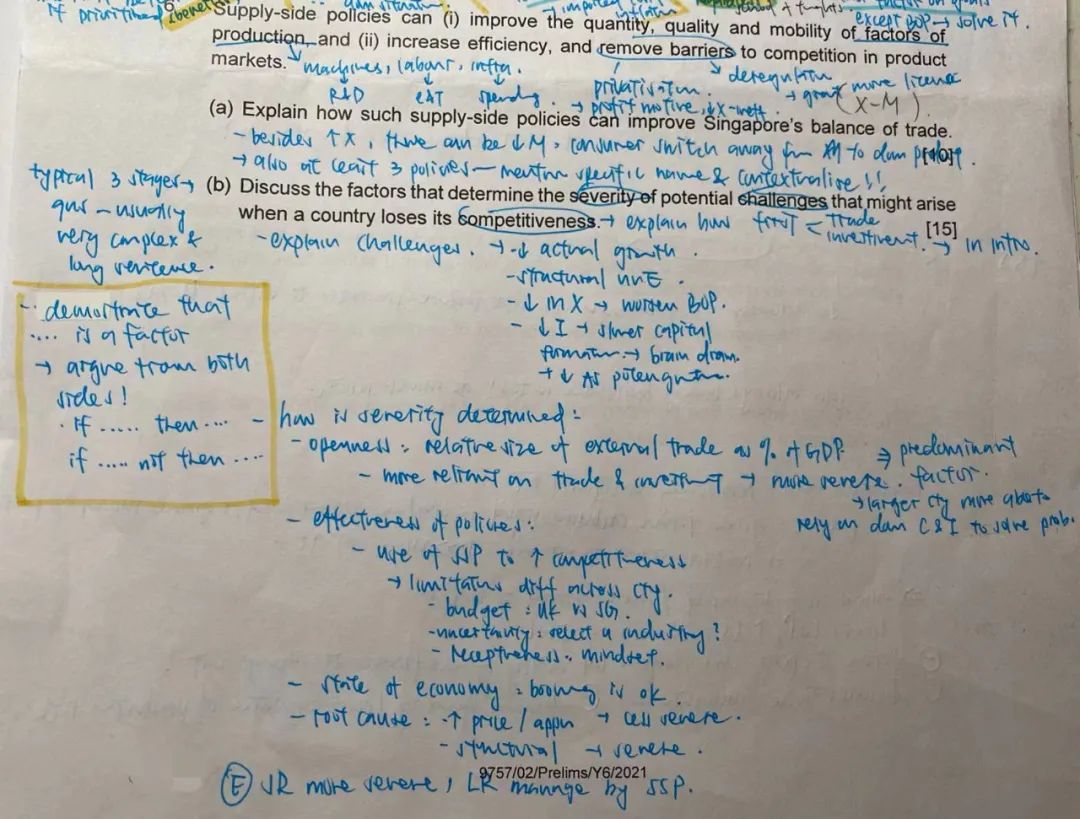 If prioritised
except BOP → solve it.
Supply-side policies can (i) improve the quantity, quality and mobility of factors of
production, and (ii) increase efficiency, and remove barriers to competition in product
markets.
machines, labour, infra.
R&D
spending
privatisation.
→ profit motive, ↓X-ineff.
deregulation
→ grant more licence
(X-M)
(a) Explain how such supply-side policies can improve Singapore's balance of trade.
[10]
- besides ↑X, there can be ↓M. consumer switch away from M to dom
→ also at least 3 policies - mention specific name & contextualise!!
(b) Discuss the factors that determine the severity of potential challenges that might arise
when a country loses its competitiveness.
[15]
→ explain how
trade
investment.
→ in intro.
typical 3 stages →
qns - usually
very complex &
long sentence.
- explain challenges.
→ -↓ actual growth.
- structural unE.
- ↓ in X → worsen BOP.
- ↓I → slower capital
formation → brain drain.
→ ↓ AS
- demonstrate that
.... is a factor
→ argue from both
sides!
· If ...... then ....
if ..... not then ....
- how is severity determined:
- openness: relative size of external trade as % of GDP
⇒ predominant
factor.
- more reliant on trade & investment → more severe.
→ larger cty more able to
rely on dom C&I to solve prob.
- effectiveness of policies:
- use of SSP to ↑ competitiveness
→ limitations diff across cty.
- budget: UK vs SG.
- uncertainty: select a industry?
- receptiveness: mindset.
- state of economy: booming is ok.
- root cause: -↑ price / appn → less severe.
- structural → severe.
9757/02/Prelims/Y6/2021
(E) SR more severe, LR manage by SSP.